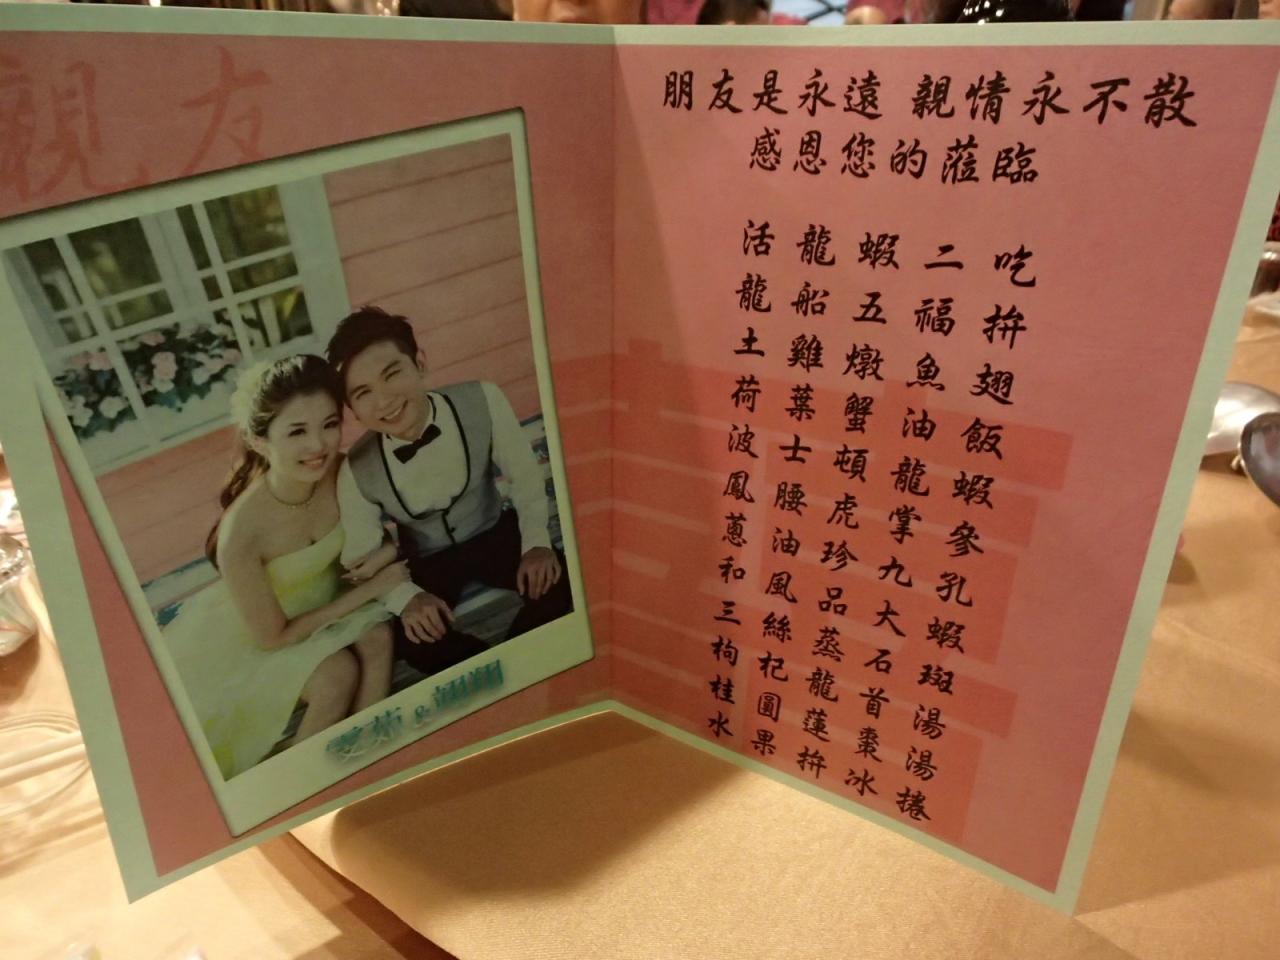 親友
朋友是永遠 親情永不散
感恩您的蒞臨
活龍蝦二吃
龍船五福拚
土雞燉魚翅
荷葉蟹油飯
波士頓龍蝦
鳳腰虎掌參
蔥油珍九孔
和風品大蝦
三絲蒸石斑
枸杞龍首湯
桂圓蓮棗湯
水果拚冰捲